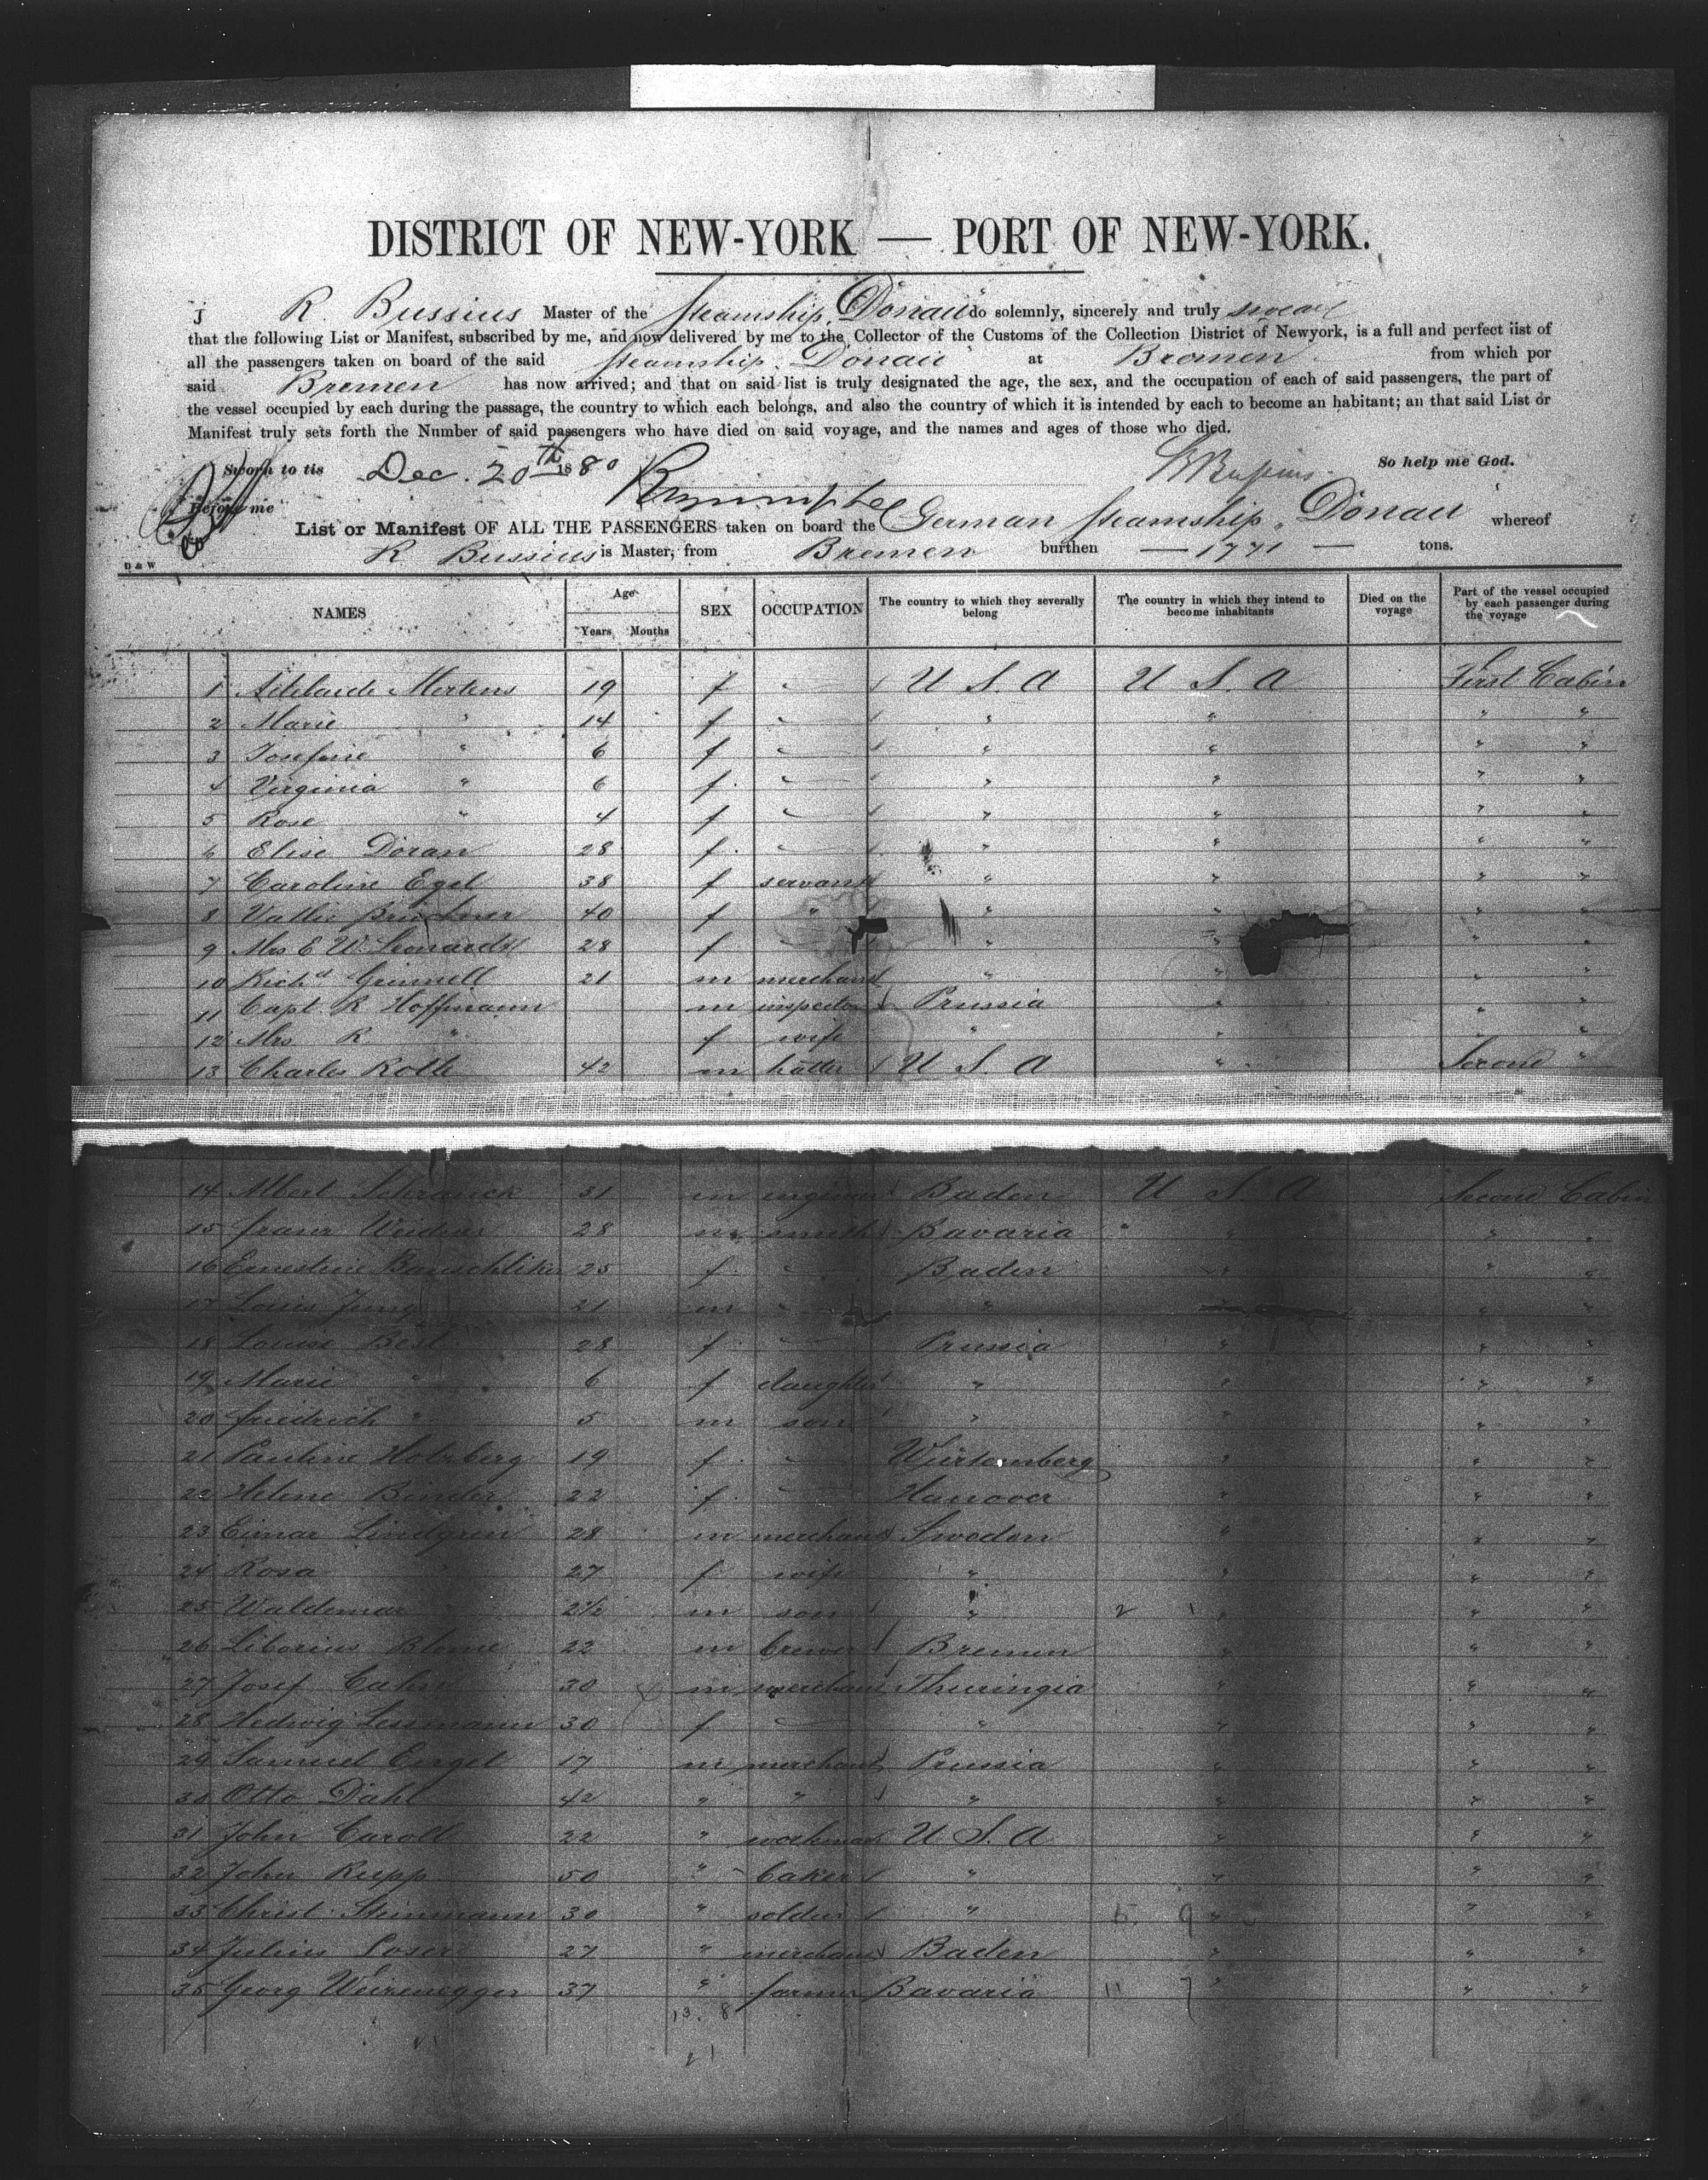 DISTRICT OF NEW-YORK — PORT OF NEW-YORK.
I R. Bussius Master of the Steamship „Donau" do solemnly, sincerely and truly swear
that the following List or Manifest, subscribed by me, and now delivered by me to the Collector of the Customs of the Collection District of Newyork, is a full and perfect list of
all the passengers taken on board of the said steamship „Donau" at Bremen from which por
said Bremen has now arrived; and that on said list is truly designated the age, the sex, and the occupation of each of said passengers, the part of
the vessel occupied by each during the passage, the country to which each belongs, and also the country of which it is intended by each to become an habitant; an that said List or
Manifest truly sets forth the Number of said passengers who have died on said voyage, and the names and ages of those who died.
Sworn to tis Dec. 20th 1880 R Bussius So help me God.
Before me
List or Manifest OF ALL THE PASSENGERS taken on board the German steamship „Donau" whereof
R Bussius is Master, from Bremen burthen — 1771 — tons.
D & W
NAMES Age Years Months SEX OCCUPATION The country to which they severally belong The country in which they intend to become inhabitants Died on the voyage Part of the vessel occupied by each passenger during the voyage
1 Adelaide Mertens 19 f " U S. A U S. A First Cabin
2 Marie " 14 f " " " " "
3 Josefine " 6 f " " " " "
4 Virginia " 6 f. " " " " "
5 Rose " 4 f " " " " "
6 Elise Doran 28 f. " " " " "
7 Caroline Egel 38 f servant " " " "
8 Vallie 40 f " " " " "
9 Mrs E. W. Leonardt 28 f " " " " "
10 Richd Grinnell 21 m merchant " " " "
11 Capt. R Hoffmann m inspector Prussia " " "
12 Mrs R " f wife " " " "
13 Charles Rolle 42 m hatter U S. A " Second "
14 Albert Schranck 31 m engineer Baden U S. A Second Cabin
15 Franz 28 m smith Bavaria " " "
16 Ernestine Bauschliker 25 f " Baden " " "
17 Louis Jung 21 m " " " " "
18 Louise Best 28 f. Prussia " " "
19 Marie " 6 f daughter " " " "
20 Friedrich " 5 m son " " " "
21 Pauline Holzberg 19 f. Würtemberg " " "
22 Helene Binder 22 f. Hanover " " "
23 Eimar Lindgren 28 m merchant Sweden " " "
24 Rosa " 27 f wife " " " "
25 Waldemar " 2½ m son " 2 1 " " "
26 Liborius Blome 22 m brewer Bremen " " "
27 Josef Cahn 30 m merchant Thuringia " " "
28 Hedwig Lessmann 30 f " " " "
29 Samuel Engel 17 m merchant Prussia " " "
30 Otto Dahl 42 " " " " " "
31 John Caroll 22 " workman U S. A " " "
32 John Rupp 50 " baker " " " "
33 Christ. Steinmann 30 " soldier " 6 9 " " "
34 Julius Loser 27 " merchant Baden " " "
35 Georg Weirenegger 37 " farmer Bavaria 11 7 " " "
13. 8
21